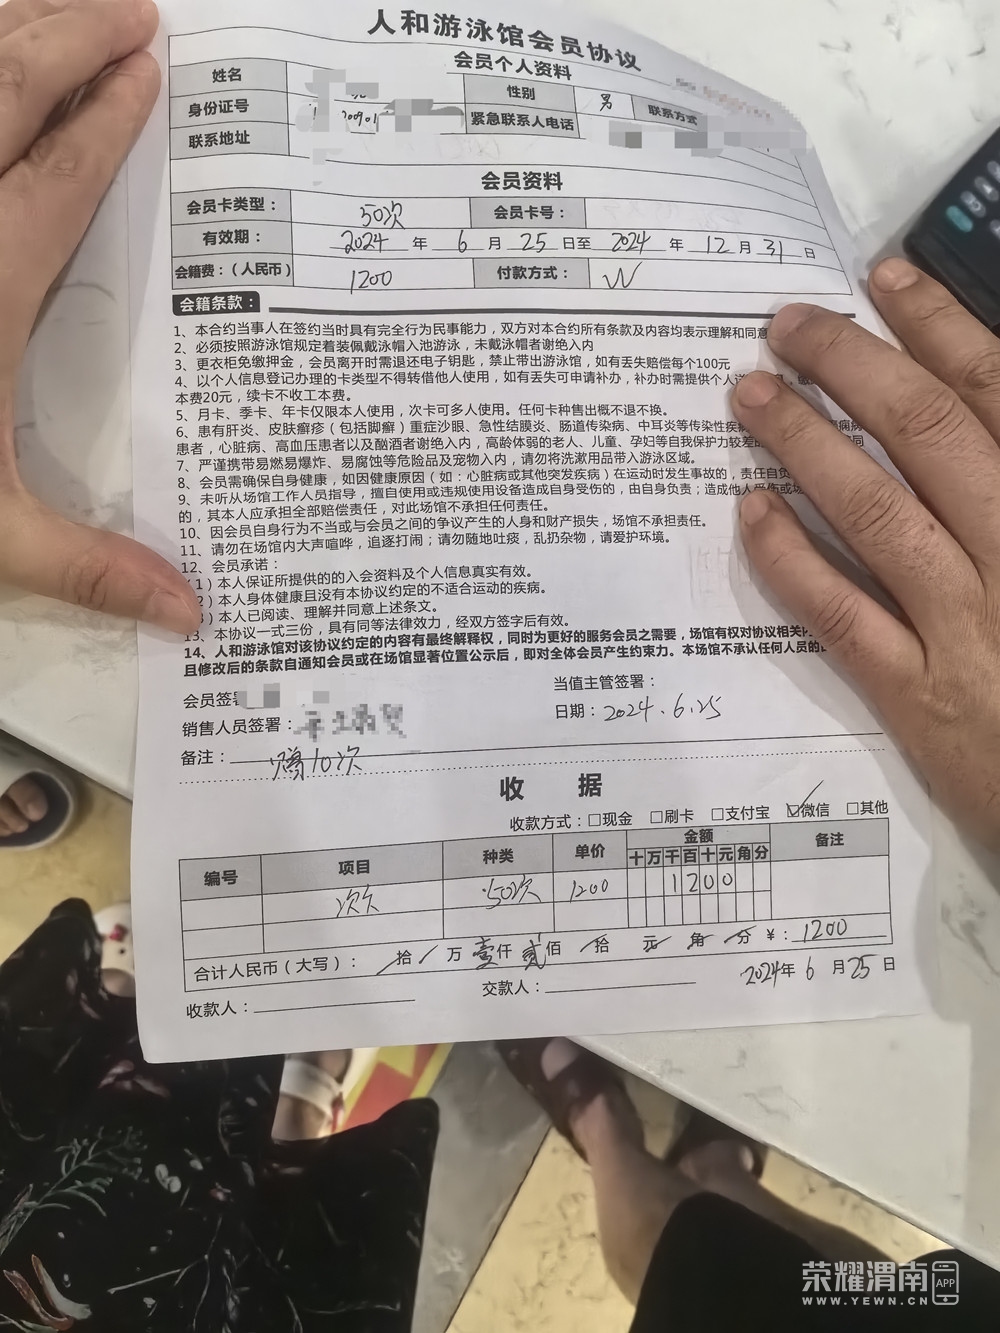 人和游泳馆会员协议
会员个人资料
姓名
性别 男 联系方式
身份证号
紧急联系人电话
联系地址
会员资料
会员卡类型： 50次 会员卡号：
有效期： 2024 年 6 月 25 日至 2024 年 12 月 31 日
会籍费：（人民币） 1200 付款方式： W
会籍条款：
1、本合约当事人在签约当时具有完全行为民事能力，双方对本合约所有条款及内容均表示理解和同意
2、必须按照游泳馆规定着装佩戴泳帽入池游泳，未戴泳帽者谢绝入内
3、更衣柜免缴押金，会员离开时需退还电子钥匙，禁止带出游泳馆，如有丢失赔偿每个100元
4、以个人信息登记办理的卡类型不得转借他人使用，如有丢失可申请补办，补办时需提供个人
本费20元，续卡不收工本费。
5、月卡、季卡、年卡仅限本人使用，次卡可多人使用。任何卡种售出概不退不换。
6、患有肝炎、皮肤癣疹（包括脚癣）重症沙眼、急性结膜炎、肠道传染病、中耳炎等传染性疾病
患者，心脏病、高血压患者以及酗酒者谢绝入内，高龄体弱的老人、儿童、孕妇等自我保护力较差的
7、严谨携带易燃易爆炸、易腐蚀等危险品及宠物入内，请勿将洗漱用品带入游泳区域。
8、会员需确保自身健康，如因健康原因（如：心脏病或其他突发疾病）在运动时发生事故的，责任自负
9、未听从场馆工作人员指导，擅自使用或违规使用设备造成自身受伤的，由自身负责；造成他人受伤或
的，其本人应承担全部赔偿责任，对此场馆不承担任何责任。
10、因会员自身行为不当或与会员之间的争议产生的人身和财产损失，场馆不承担责任。
11、请勿在场馆内大声喧哗，追逐打闹；请勿随地吐痰，乱扔杂物，请爱护环境。
12、会员承诺：
1）本人保证所提供的的入会资料及个人信息真实有效。
2）本人身体健康且没有本协议约定的不适合运动的疾病。
）本人已阅读、理解并同意上述条文。
13、本协议一式三份，具有同等法律效力，经双方签字后有效。
14、人和游泳馆对该协议约定的内容有最终解释权，同时为更好的服务会员之需要，场馆有权对协议相关
且修改后的条款自通知会员或在场馆显著位置公示后，即对全体会员产生约束力。本场馆不承认任何人员的
会员签 当值主管签署：
销售人员签署： 日期：2024.6.25
备注： 赠10次
收 据
收款方式：□现金 □刷卡 □支付宝 ☑微信 □其他
编号 项目 种类 单价 金额 备注
十 万 千 百 十 元 角 分
次卡 50次 1200 1 2 0 0
合计人民币（大写）： 拾 万 壹仟 贰佰 拾 元 角 分 ¥：1200
2024年 6 月25 日
收款人： 交款人：
荣耀渭南 APP
WWW.YEWN.CN